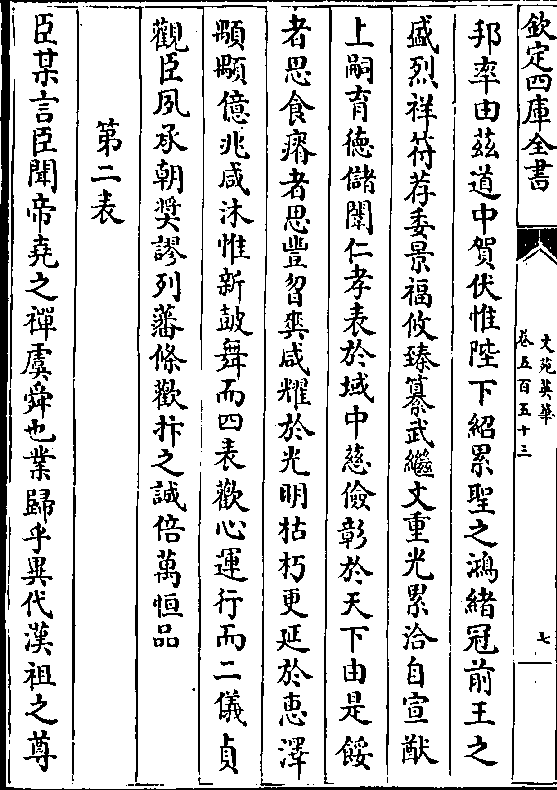 欽定四庫全書
文苑英華
卷五百五十三
七
邦率由茲道中賀伏惟陛下紹累聖之鴻緒冠前王之
盛烈祥符荐委景福攸臻纂武繼文重光累洽自宣猷
上嗣育德儲闈仁孝表於域中慈儉彰於天下由是餒
者思食瘠者思豐曶爽咸耀於光明枯朽更延於恵澤
顒顒億兆咸沐惟新皷舞而四表歡心運行而二儀貞
觀臣夙承朝奬謬列藩條歡抃之誠倍萬恒品
第二表
臣某言臣聞帝堯之禪虞舜也業歸乎異代漢祖之尊